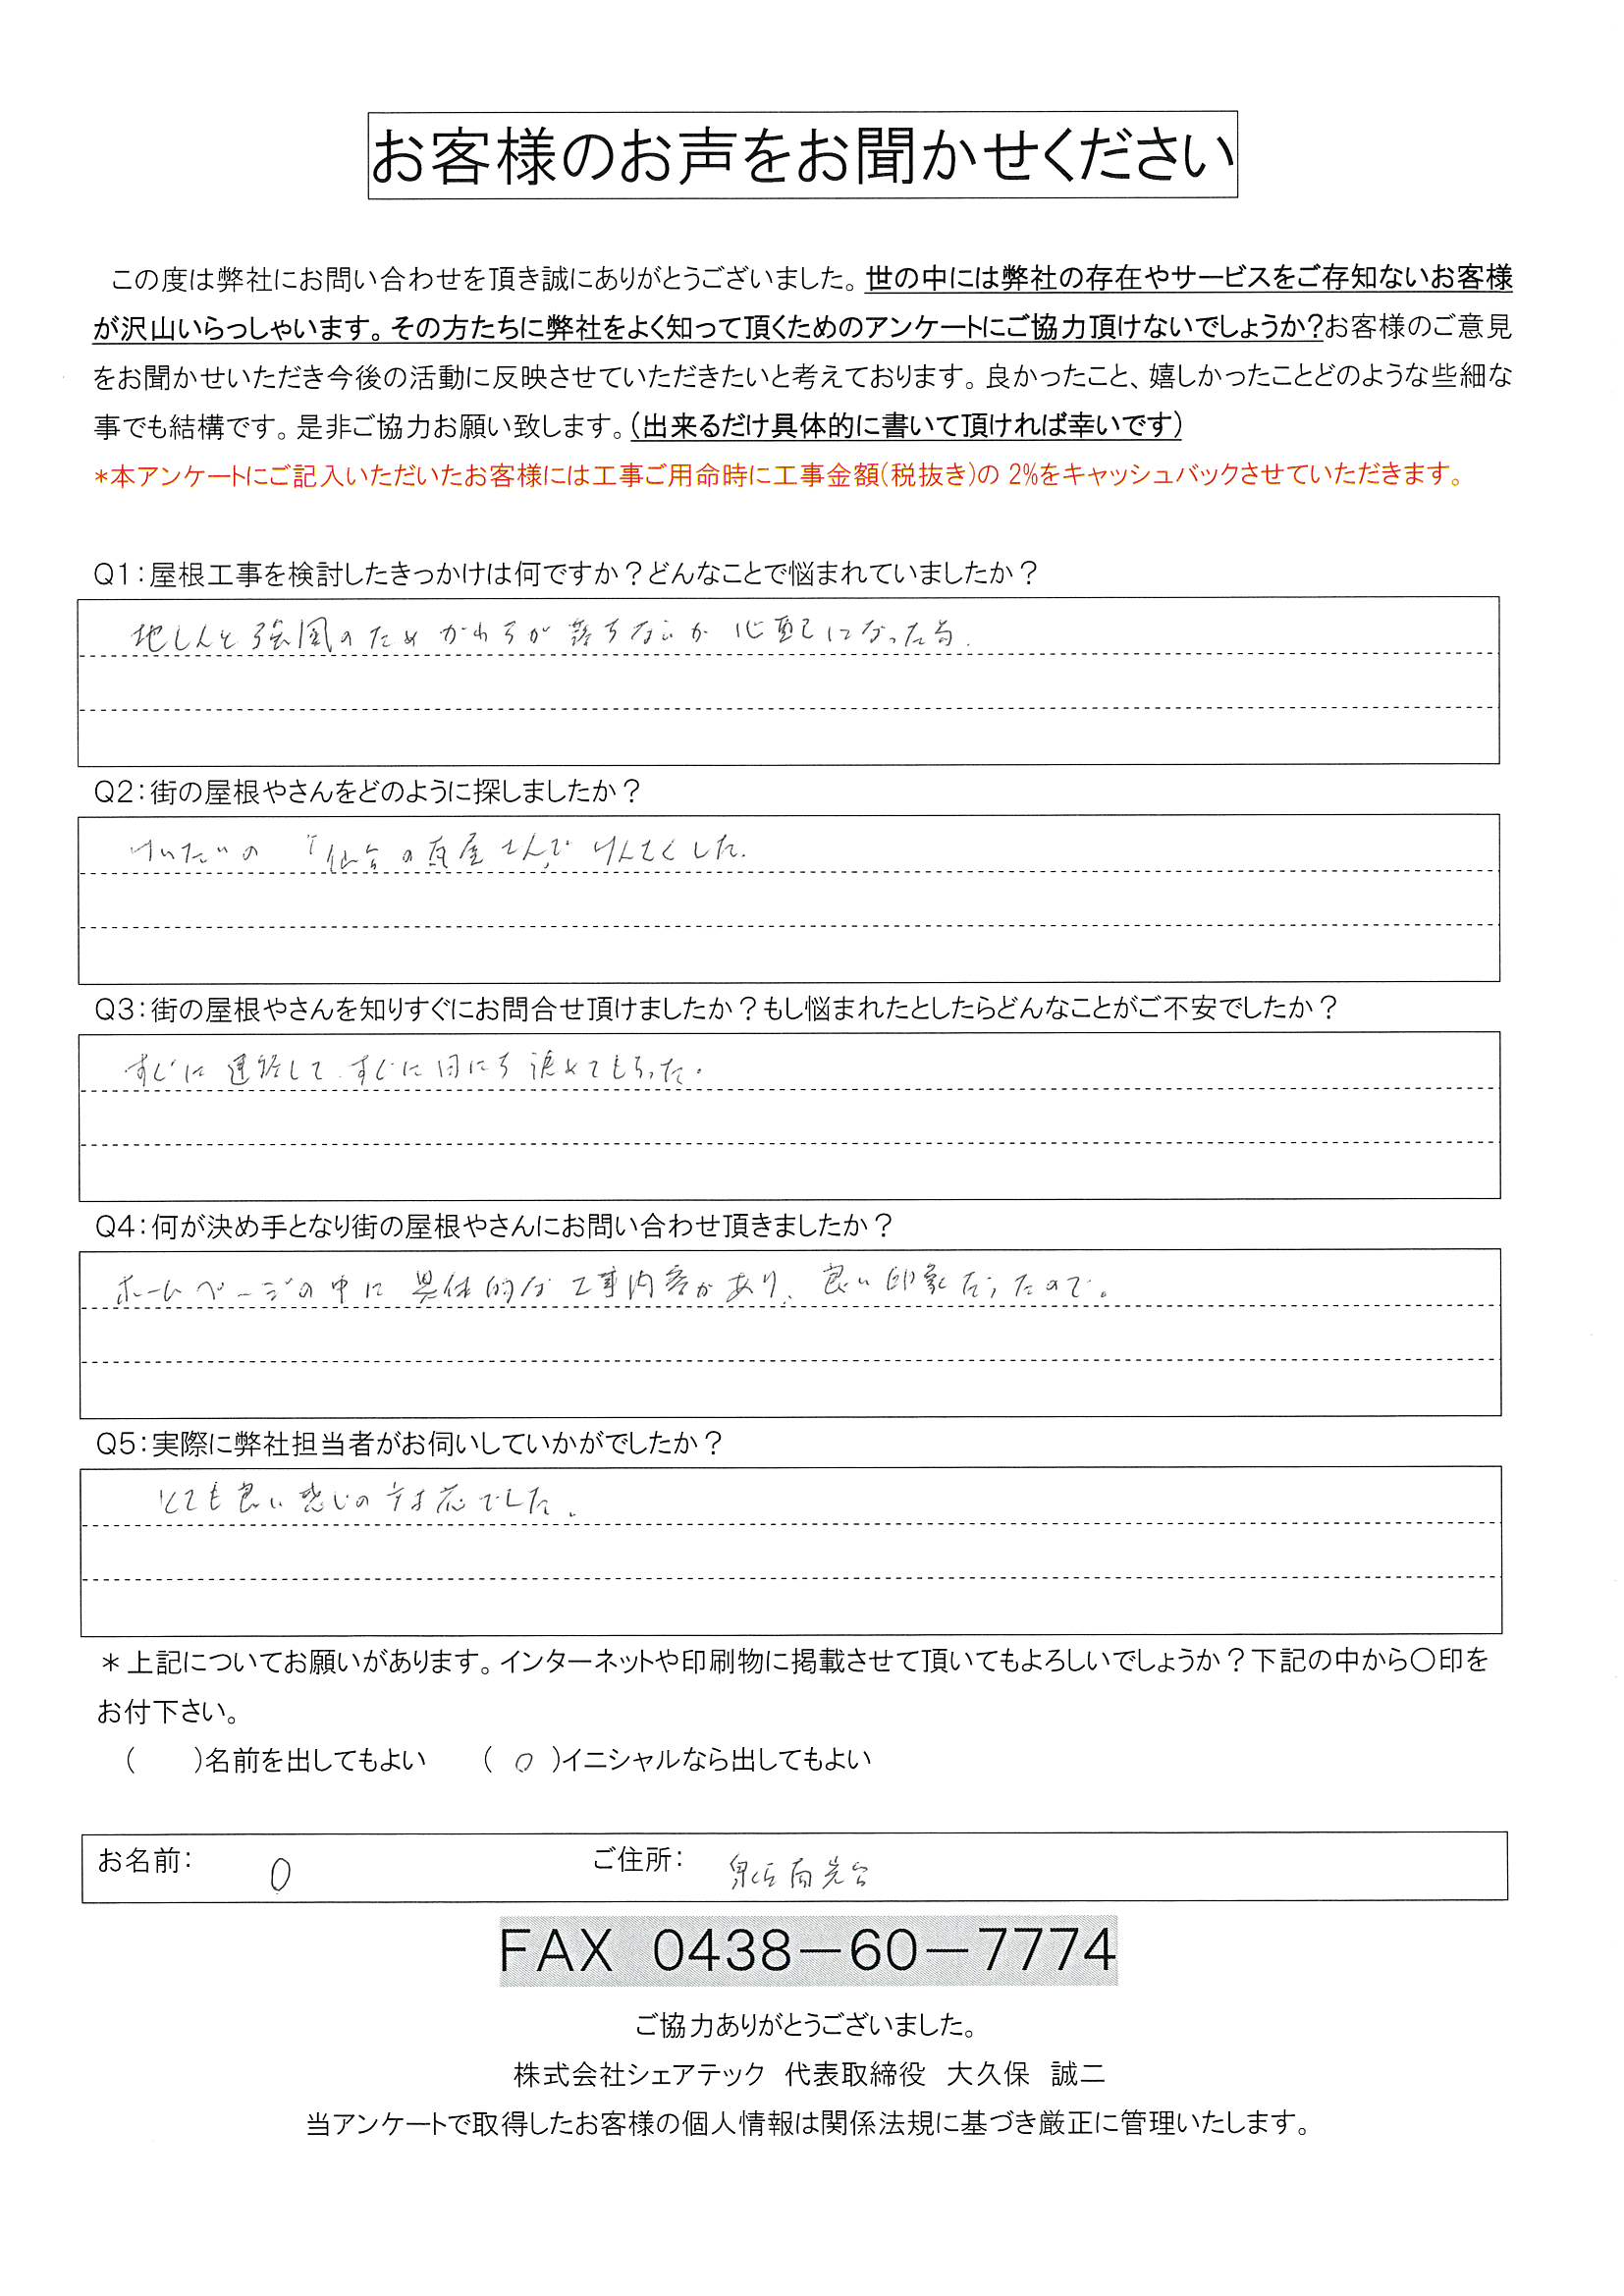 お客様のお声をお聞かせください
この度は弊社にお問い合わせを頂き誠にありがとうございました。世の中には弊社の存在やサービスをご存知ないお客様
が沢山いらっしゃいます。その方たちに弊社をよく知って頂くためのアンケートにご協力頂けないでしょうか?お客様のご意見
をお聞かせいただき今後の活動に反映させていただきたいと考えております。良かったこと、嬉しかったことどのような些細な
事でも結構です。是非ご協力お願い致します。(出来るだけ具体的に書いて頂ければ幸いです)
*本アンケートにご記入いただいたお客様には工事ご用命時に工事金額(税抜き)の 2%をキャッシュバックさせていただきます。
Q1:屋根工事を検討したきっかけは何ですか?どんなことで悩まれていましたか?
地しんと強風のためかわらが落ちないか心配になった為.
Q2:街の屋根やさんをどのように探しましたか?
けいたいの「仙台の瓦屋さん」でけんさくした.
Q3:街の屋根やさんを知りすぐにお問合せ頂けましたか?もし悩まれたとしたらどんなことがご不安でしたか?
すぐに連絡してすぐに日にち決めてもらった.
Q4:何が決め手となり街の屋根やさんにお問い合わせ頂きましたか?
ホームページの中に具体的な工事内容があり、良い印象だったので。
Q5:実際に弊社担当者がお伺いしていかがでしたか?
とても良い感じの対応でした。
*上記についてお願いがあります。インターネットや印刷物に掲載させて頂いてもよろしいでしょうか?下記の中から〇印を
お付下さい。
(　)名前を出してもよい　(○)イニシャルなら出してもよい
お名前: O　ご住所: 泉区南光台
FAX 0438-60-7774
ご協力ありがとうございました。
株式会社シェアテック 代表取締役 大久保 誠二
当アンケートで取得したお客様の個人情報は関係法規に基づき厳正に管理いたします。